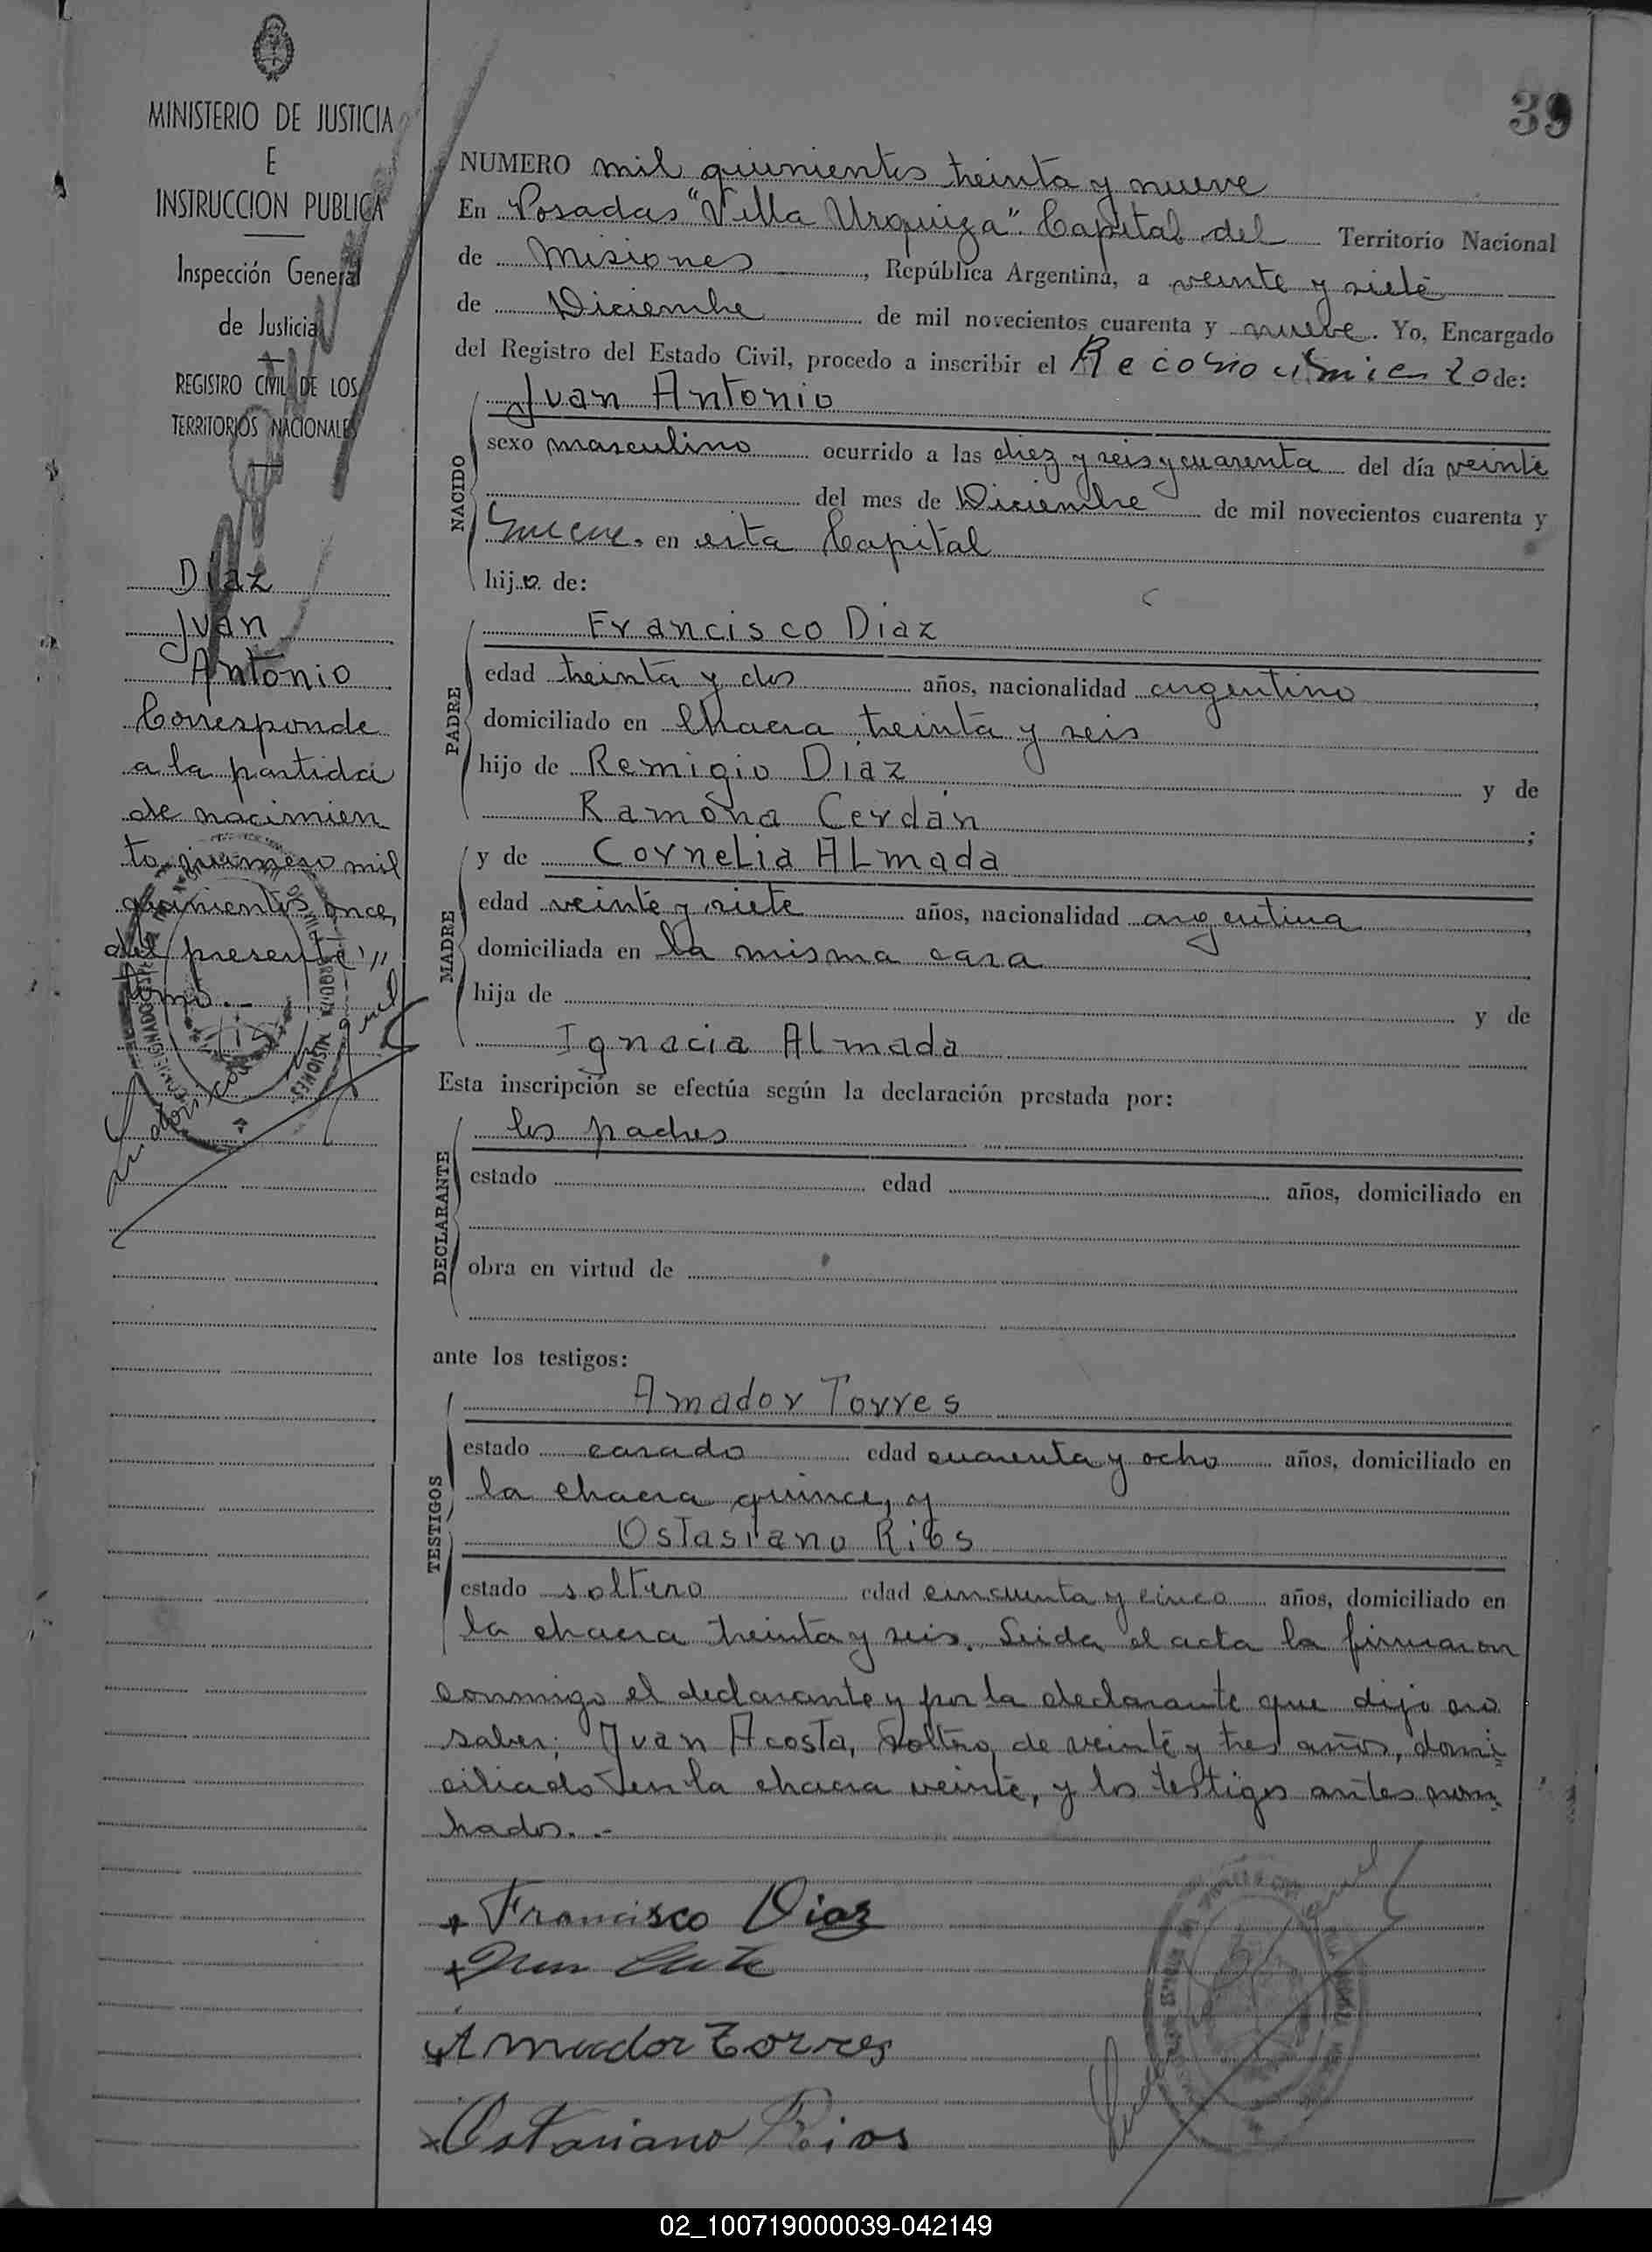 39
MINISTERIO DE JUSTICIA
E
INSTRUCCION PUBLICA
Inspección General
de Justicia
REGISTRO CIVIL DE LOS
TERRITORIOS NACIONALES
Diaz
Juan
Antonio
Corresponde
a la partida
de nacimien
to número mil
quinientos once,
del presente
tomo.-
NUMERO mil quinientos treinta y nueve
En Posadas "Villa Urquiza". Capital del Territorio Nacional
de Misiones, República Argentina, a veinte y siete
de Diciembre de mil novecientos cuarenta y nueve. Yo, Encargado
del Registro del Estado Civil, procedo a inscribir el Reconocimiento de:
NACIDO
Juan Antonio
sexo masculino ocurrido a las diez y seis y cuarenta del día veinte
del mes de Diciembre de mil novecientos cuarenta y
nueve, en esta Capital
hijo de:
PADRE
Francisco Diaz
edad treinta y dos años, nacionalidad argentino,
domiciliado en Chacra treinta y seis
hijo de Remigio Diaz y de
Ramona Cerdán;
MADRE
y de Cornelia Almada
edad veinte y siete años, nacionalidad argentina,
domiciliada en la misma casa
hija de y de
Ignacia Almada
Esta inscripción se efectúa según la declaración prestada por:
DECLARANTE
los padres
estado edad años, domiciliado en
obra en virtud de
ante los testigos:
TESTIGOS
Amador Torres
estado casado edad cuarenta y ocho años, domiciliado en
la chacra quince, y
Ostasiano Rios
estado soltero edad cincuenta y cinco años, domiciliado en
la chacra treinta y seis. Leida el acta la firmaron
conmigo el declarante y por la declarante que dijo no
saber; Juan Acosta, soltero, de veinte y tres años, domi
ciliado en la chacra veinte, y los testigos antes nom
brados.-
Francisco Diaz
Amador Torres
Ostasiano Rios
02_100719000039-042149